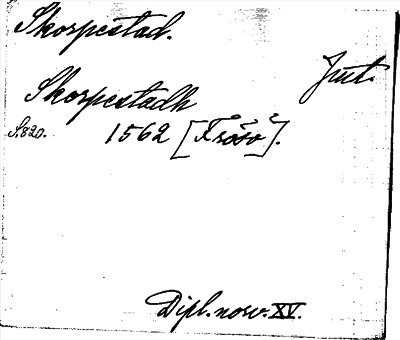 Skorpestad.
Jmt.
Skorpestadh
S. 820. 1562 [Frösö].
Dipl. norv. XV.